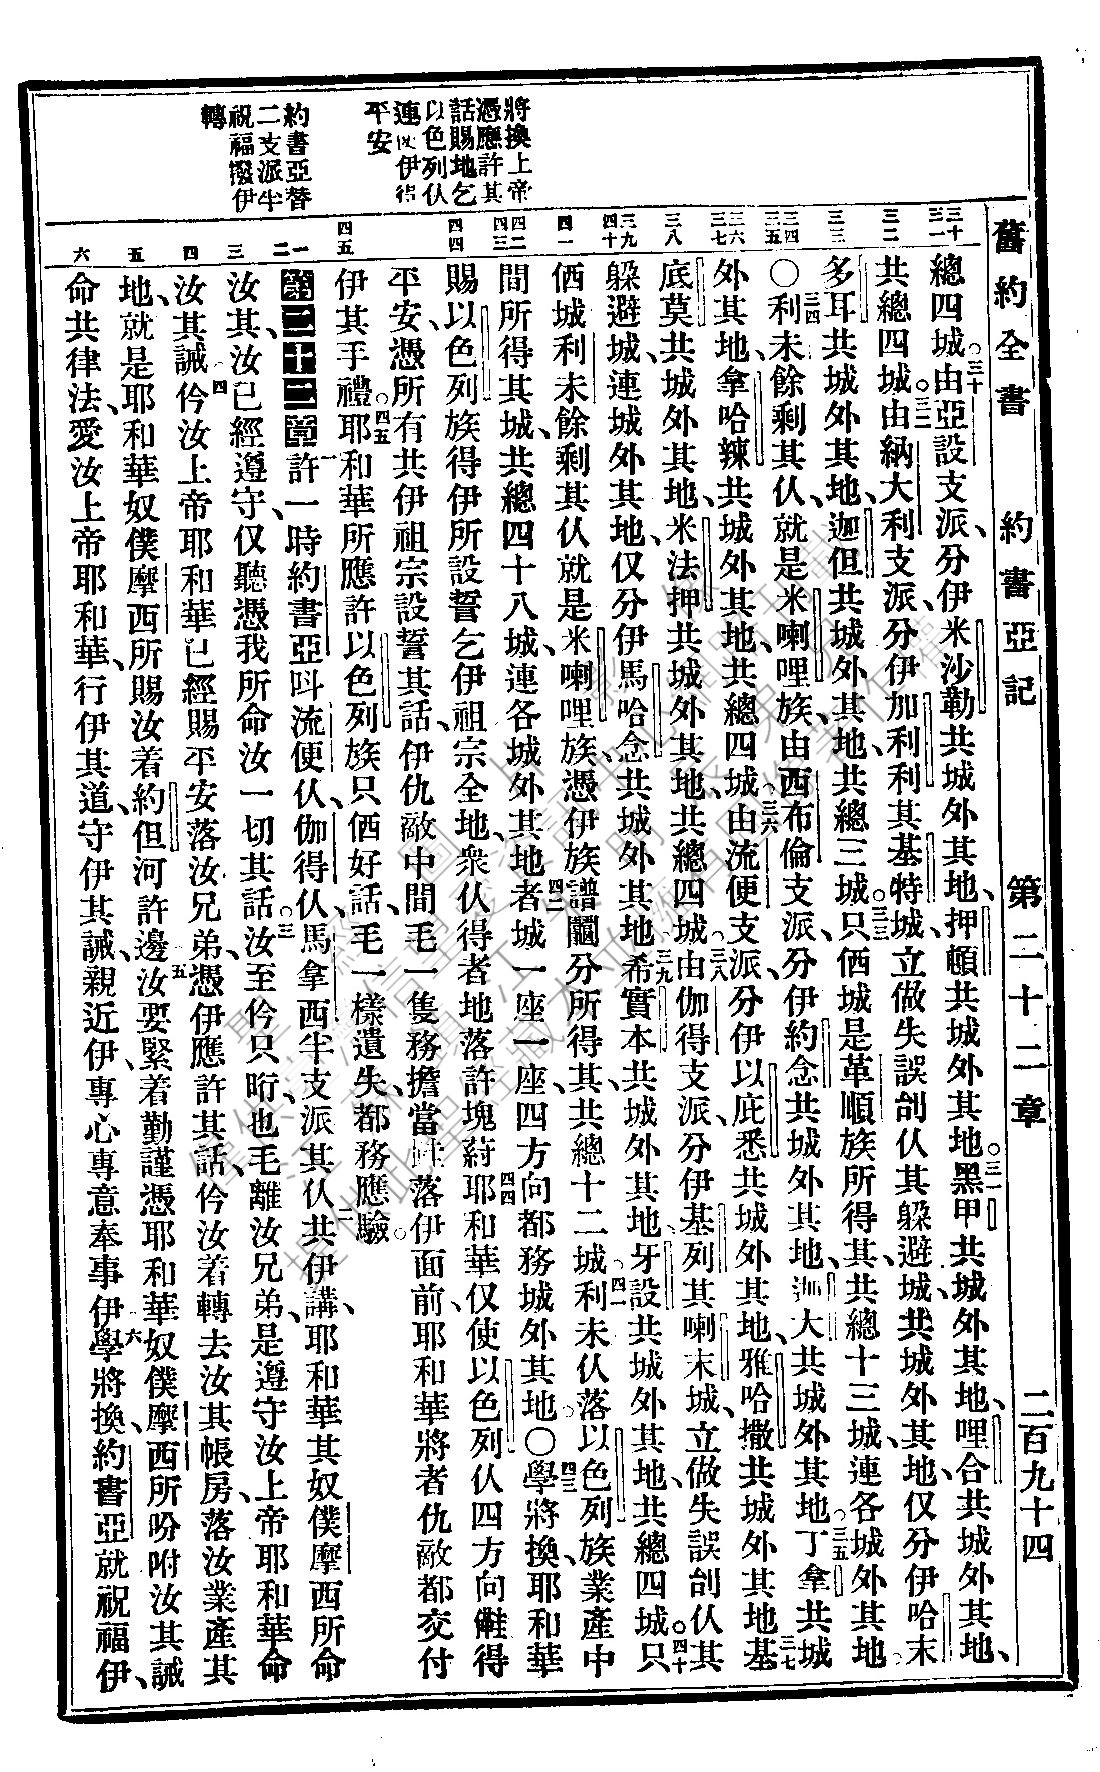 舊約全書 約書亞記 第二十二章 二百九十四
將換上帝
憑應許其
話賜地乞
以色列仈
連 伊得
平安
約書亞替
二支派半
祝福撥伊
轉
三十 三一 三二 三三 三四 三五 三六 三七 三八 三九 四十 四一 四二 四三 四四 四五 一 二 三 四 五 六
總四城。三十由亞設支派、分伊米沙勒共城外其地、押頓共城外其地。三一黑甲共城外其地、哩合共城外其地、
共總四城。三二由納大利支派、分伊加利利其基特城、立做失誤刣仈其躲避城、共城外其地、仅分伊哈末
多耳共城外其地、迦但共城外其地、共總三城。三三只仴城是革順族所得其、共總十三城、連各城外其地。
〇三四利未餘剩其仈、就是米喇哩族、由西布倫支派、分伊約念共城外其地、迦大共城外其地。三五丁拿共城
外其地、拿哈辣共城外其地、共總四城。三六由流便支派、分伊以庇悉共城外其地、雅哈撒共城外其地三七基
底莫共城外其地、米法押共城外其地、共總四城。三八由伽得支派、分伊基列其喇末城、立做失誤刣仈其
躲避城、連城外其地、仅分伊馬哈念共城外其地三九希實本共城外其地、牙設共城外其地、共總四城。四十只
仴城、利未餘剩其仈、就是米喇哩族、憑伊族譜鬮分所得其、共總十二城。四一利未仈落以色列族業產中
間所得其城、共總四十八城、連各城外其地。四二者城一座一座、四方向都務城外其地。〇四三學將換、耶和華
賜以色列族得伊所設誓乞伊祖宗全地、衆仈得者地落許塊蒔。四四耶和華仅使以色列仈四方向雔得
平安、憑所有共伊祖宗設誓其話、伊仇敵中間毛一隻務擔當 落伊面前、耶和華將者仇敵都交付
伊其手禮。四五耶和華所應許以色列族只仴好話、毛一樣遺失、都務應驗。
第二十二章一許一時約書亞呌流便仈、伽得仈、馬拿西半支派其仈、二共伊講、耶和華其奴僕摩西所命
汝其、汝已經遵守、仅聽憑我所命汝一切其話。三汝至仱只晌、也毛離汝兄弟、是遵守汝上帝耶和華命
汝其誡。四仱汝上帝耶和華已經賜平安落汝兄弟、憑伊應許其話、仱汝着轉去汝其帳房、落汝業產其
地、就是耶和華奴僕摩西所賜汝着約但河許邊。五汝要緊着勤謹憑耶和華奴僕摩西所吩咐汝其誡
命共律法、愛汝上帝耶和華、行伊其道、守伊其誡、親近伊、專心專意奉事伊。六學將換、約書亞就祝福伊、